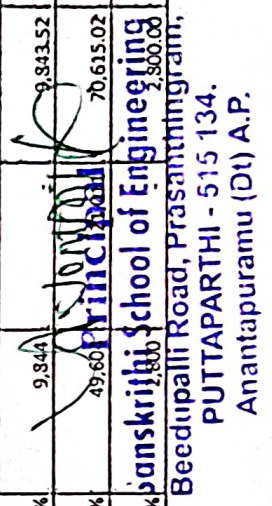 9,844 9,843.52
49,60 70,615.02
2,800 2,800.00
Principal
Sanskrithi School of Engineering
Beedupalli Road, Prasanthingram,
PUTTAPARTHI - 515 134.
Anantapuramu (Dt) A.P.